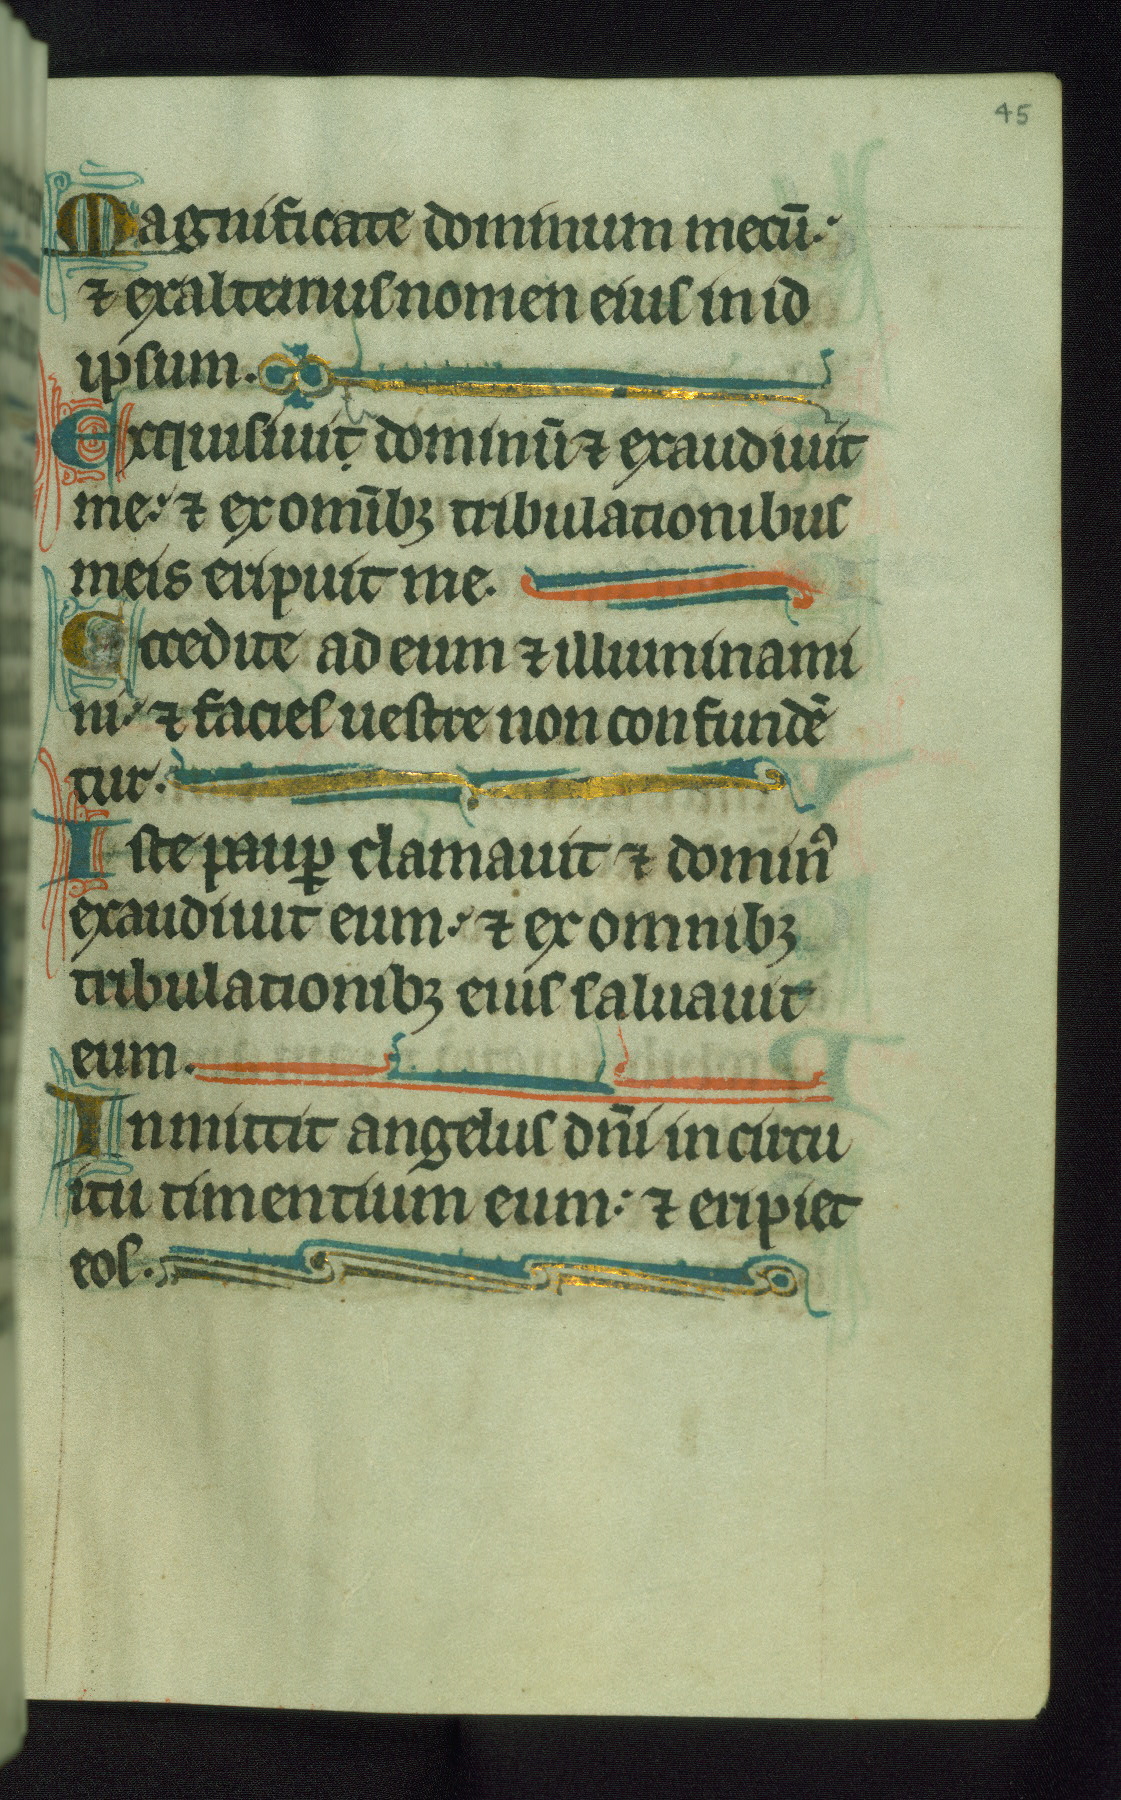 45
Magnificate dominum mecū.
⁊ exaltemus nomen eius in id
ipsum.
Exquisiuit dominū ⁊ exaudiuit
me: ⁊ ex omībꝫ tribulationibus
meis eripuit me.
Accedite ad eum ⁊ illuminami
ni: ⁊ facies uestre non confundē
tur.
Iste paup̱ clamauit ⁊ domin᾽
exaudiuit eum: ⁊ ex omnibꝫ
tribulationibꝫ eius saluauit
eum.
Inmittit angelus dn̄i in circu
itu timentium eum: ⁊ eripiet
eos.